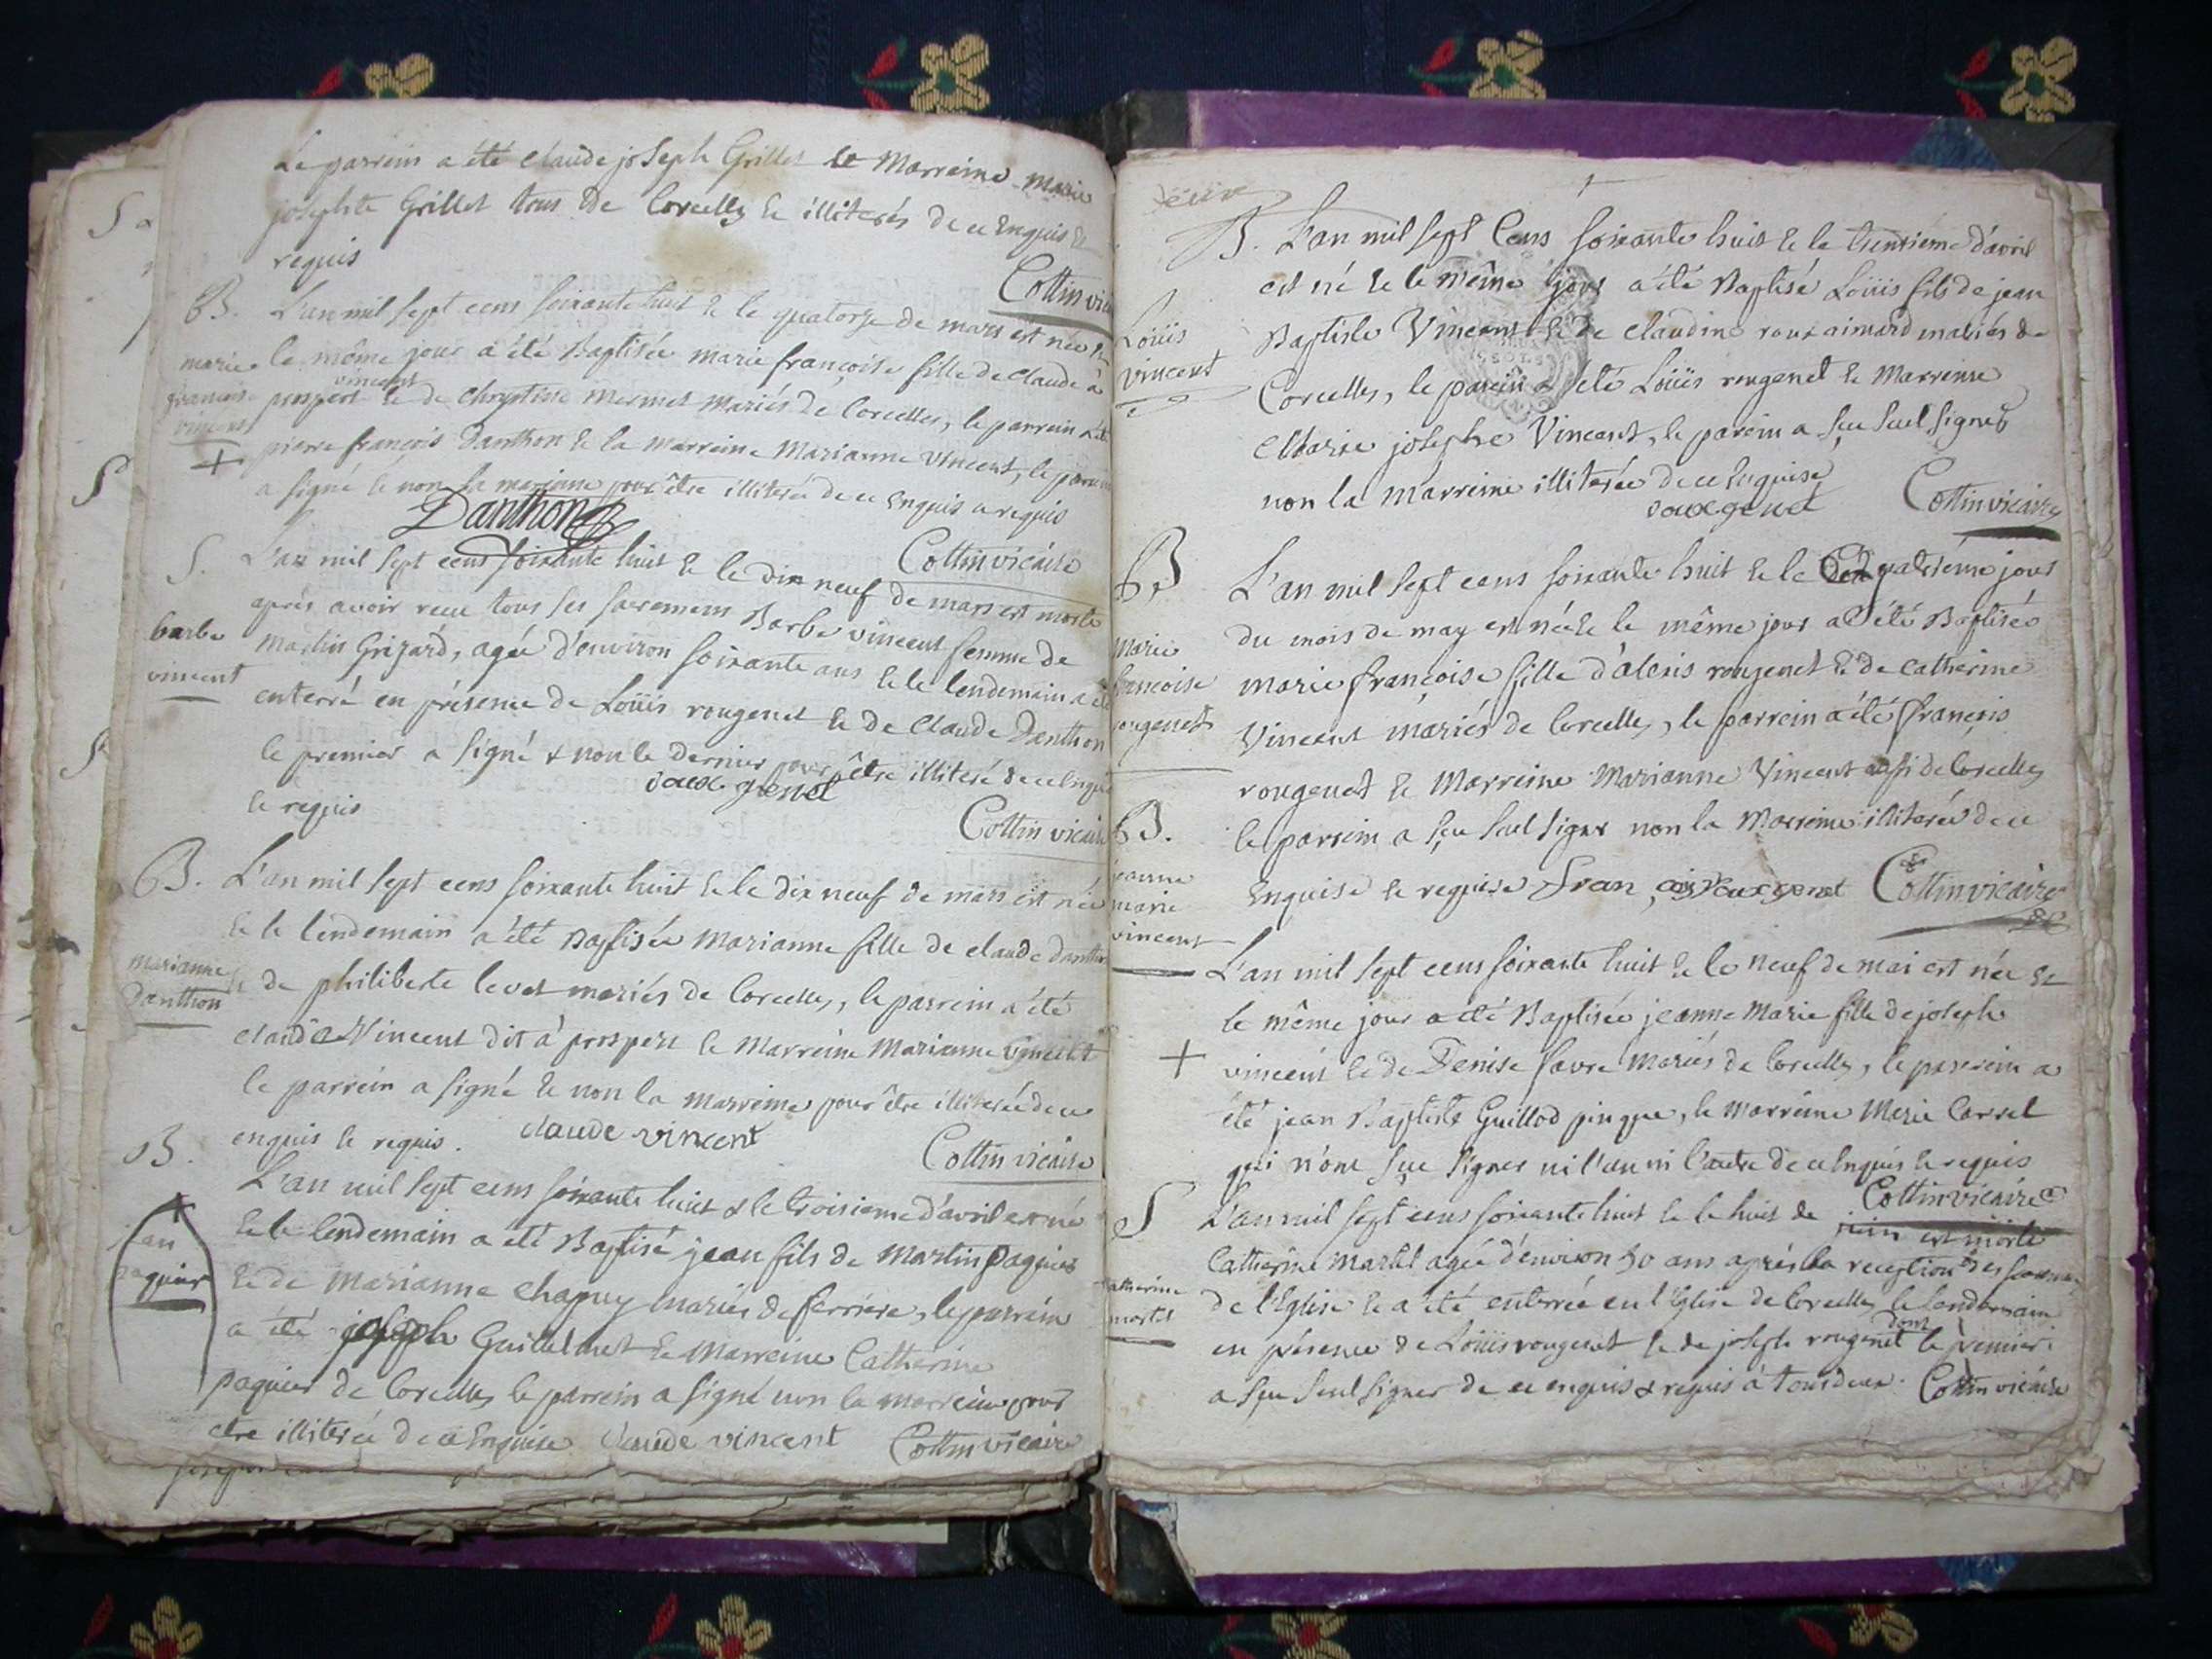 Le parrein a été claude joseph Grillet et Marreine marie
josephte Grillet tous de Corcelles et illiterés de ce Enquis et
requis
Cottin vicaire
B. L'an mil sept cens soixante huit et le quatorze de mars est née et
marie le même jour a été Baptisée marie françoise fille de claude à
françoise prospert vincent et de Chrystine mermet mariés de Corcelles, le parrein a été
vincent
+ pierre françois Danthon et la marreine Marianne Vincent, le parrein
a signé et non la marreine pour être illiterée de ce Enquis et requis
Danthon
Cottin vicaire
S. L'an mil sept cens soixante huit et le dix neuf de mars est morte
après avoir receu tous ses sacremens Barbe vincent femme de
barbe
vincent
Martin Grizard, agée d'environ soixante ans et le lendemain a été
enterré en présence de Loüis rougenet et de Claude Danthon
le premier a signé & non le dernier pour être illiteré de ce Enquis
et requis
Cottin vicaire
B. L'an mil sept cens soixante huit et le dix neuf de mars est née
et le lendemain a été Baptisée Marianne fille de claude danthon
marianne
Danthon
et de philiberte levet mariés de Corcelles, le parrein a été
claude Vincent dit à prospert et Marreine Marianne vincent
le parrein a signé et non la marreine pour être illiterée de ce
enquis et requis. claude vincent
Cottin vicaire
B.
L'an mil sept cens soixante huit & le troisieme d'avril est né
et le lendemain a été Baptisé jean fils de Martin paquier
jean
paquier
et de Marianne chapuy mariés de ferriere, le parrein
a été joseph Guillelmet et Marreine Catherine
paquier de Corcelles, le parrein a signé non la marreine pour
etre illiterée de ce Enquise claude vincent Cottin vicaire
B. L'an mil sept Cens soixante huit et le trentième d'avril
est né et le même jour a été Baptisé Loüis fils de jean
Loüis
vincent
Baptiste Vincent et de claudine roux aimard mariés de
Corcelles, le parein a été Loüis rougenet et Marreine
Marie josephe Vincent, le parein a sçu seul signer
non la Marreine illiterée de ce Enquise
Cottin vicaire
B L'an mil sept cens soixante huit et le quatrième jour
du mois de may est née et le même jour a été Baptisée
marie
francoise
rougenet
marie françoise fille d'alexis rougenet et de catherine
Vincent mariés de Corcelles, le parrein a été françois
rougenet et Marreine Marianne Vincent aussi de Corcelles
le parrein a sçu seul signer non la Marreine illiterée de ce
Enquise et requise Cottin vicaire
B.
jeanne
marie
vincent
L'an mil sept cens soixante huit et le neuf de mai est née et
le même jour a été Baptisée jeanne Marie fille de joseph
+ vincent et de Denise favre Mariés de Corcelles, le parrein a
été jean Baptiste Guillod pingue, et marreine Marie Carrel
qui n'ont sçu signer ni l'un ni l'autre de ce Enquis et requis
Cottin vicaire
S L'an mil sept cens soixante huit et le huit de juin est morte
Catherine martel agée d'environ 50 ans après la reception des sacremens
catherine
martel
de l'Eglise et a été enterrée en l'Eglise de Corcelles le lendemain
en présence de Loüis rougenet et de joseph rougenet dont le premier
a sçu seul signer de ce enquis & requis à tous deux. Cottin vicaire